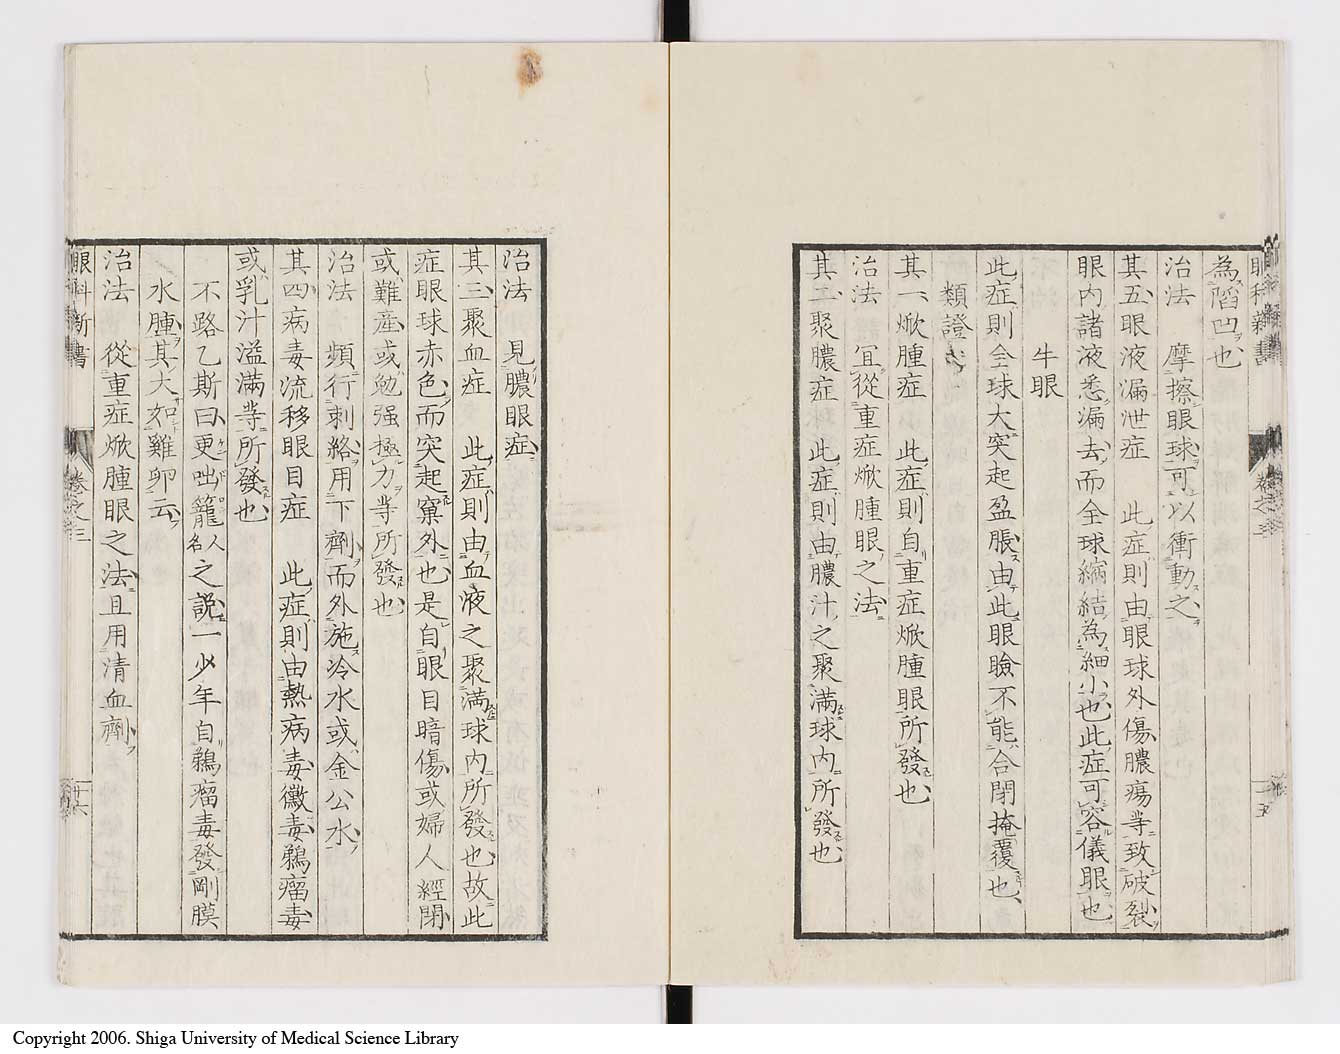 為陷凹也
治法　摩擦眼球可以衝動之
其五眼液漏泄症　此症則由眼球外傷膿瘍等致破裂
眼内諸液悉漏去而全球縮結為細小也此症可容儀眼也
牛眼
此症則全球大突起盈脹由此眼瞼不能合閉掩覆也
類證
其一焮腫症　此症則自重症焮腫眼所發也
治法　宜從重症焮腫眼之法
其二聚膿症　此症則由膿汁之聚滿球内所發也
卷之三
十五
治法　見膿眼症
其三聚血症　此症則由血液之聚滿球内所發也故此
症眼球赤色而突起窠外也是自眼目暗傷或婦人經閉
或難産或勉强極力等所發也
治法　頻行刺絡用下劑而外施冷水或金公水
其四病毒流移眼目症　此症則由熱病毒黴毒鵜瘤毒
或乳汁溢滿等所發也
不路乙斯曰更咄籠人名之説一少年自鵜瘤毒發剛膜
水腫其大如雞卵云
治法　從重症焮腫眼之法且用清血劑
眼科新書
卷之三
十六
Copyright 2006. Shiga University of Medical Science Library